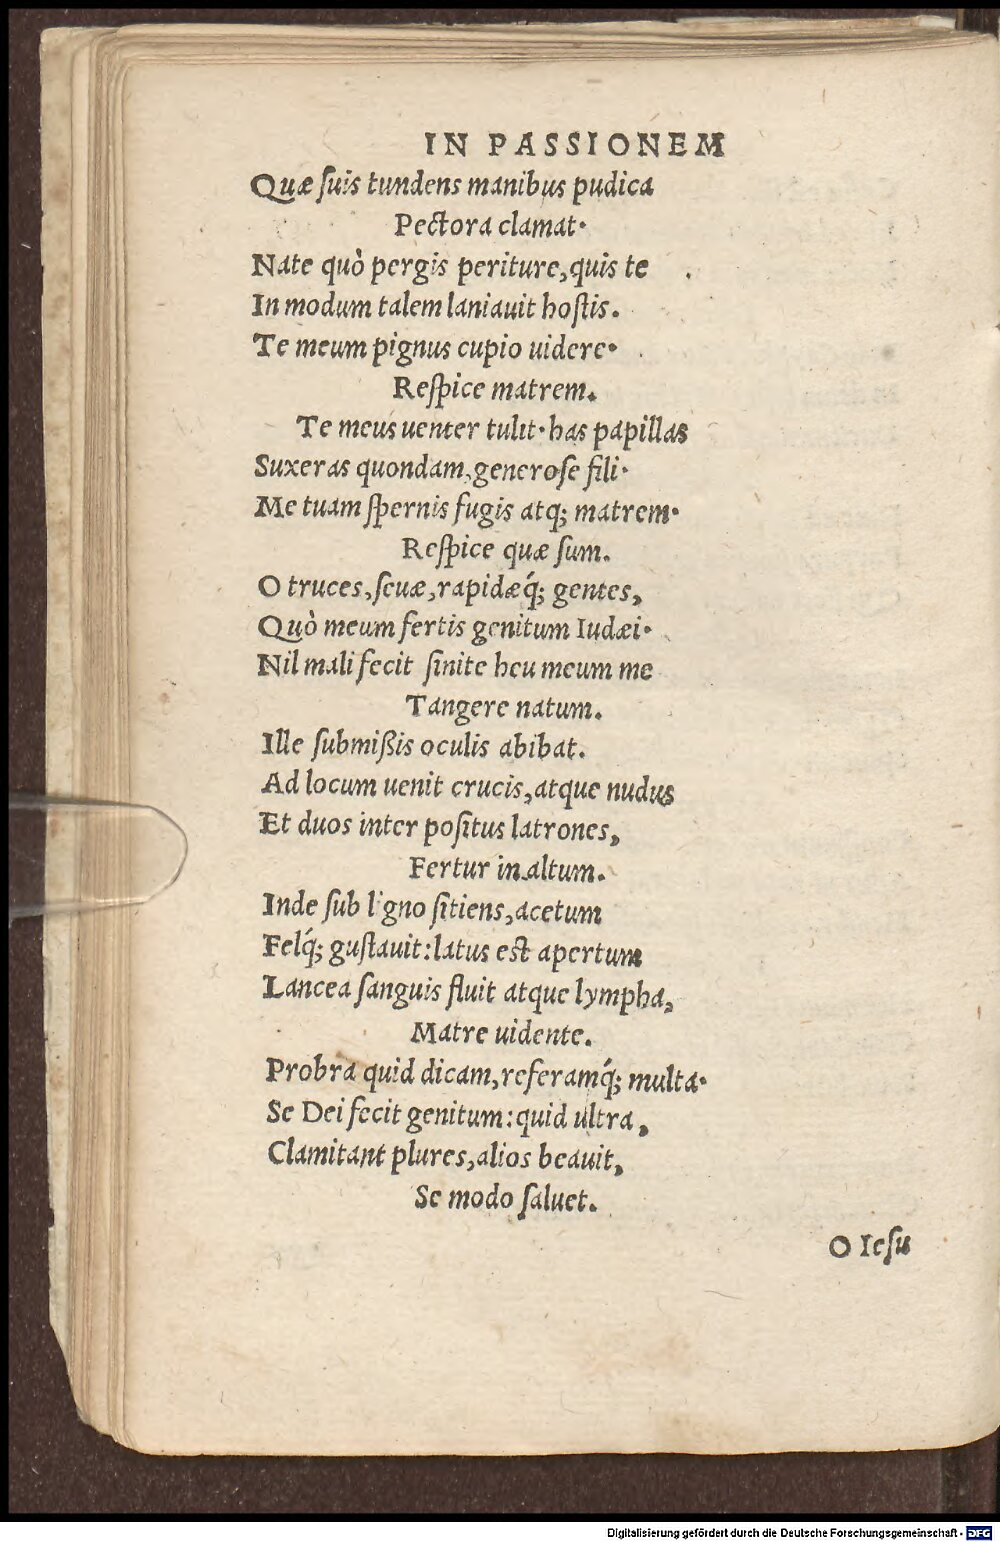 IN PASSIONEM
Quæ ſuis tundens manibus pudica
Pectora clamat·
Nate quò pergis periture, quis te
In modum talem laniauit hoſtis.
Te meum pignus cupio uidere·
Reſpice matrem.
Te meus uenter tulit· has papillas
Suxeras quondam, generoſe fili·
Me tuam ſpernis fugis atq; matrem·
Reſpice quæ ſum.
O truces, ſeuæ, rapidæq́; gentes,
Quò meum fertis genitum Iudæi·
Nil mali fecit ſinite heu meum me
Tangere natum.
Ille ſubmißis oculis abibat.
Ad locum uenit crucis, atque nudus
Et duos inter poſitus latrones,
Fertur in altum.
Inde ſub ligno ſitiens, acetum
Felq́; guſtauit: latus eſt apertum
Lancea ſanguis fluit atque lympha,
Matre uidente.
Probra quid dicam, referamq́; multa·
Se Dei fecit genitum: quid ultra,
Clamitant plures, alios beauit,
Se modo ſaluet.
O Ieſu
Digitalisierung gefördert durch die Deutsche Forschungsgemeinschaft - DFG